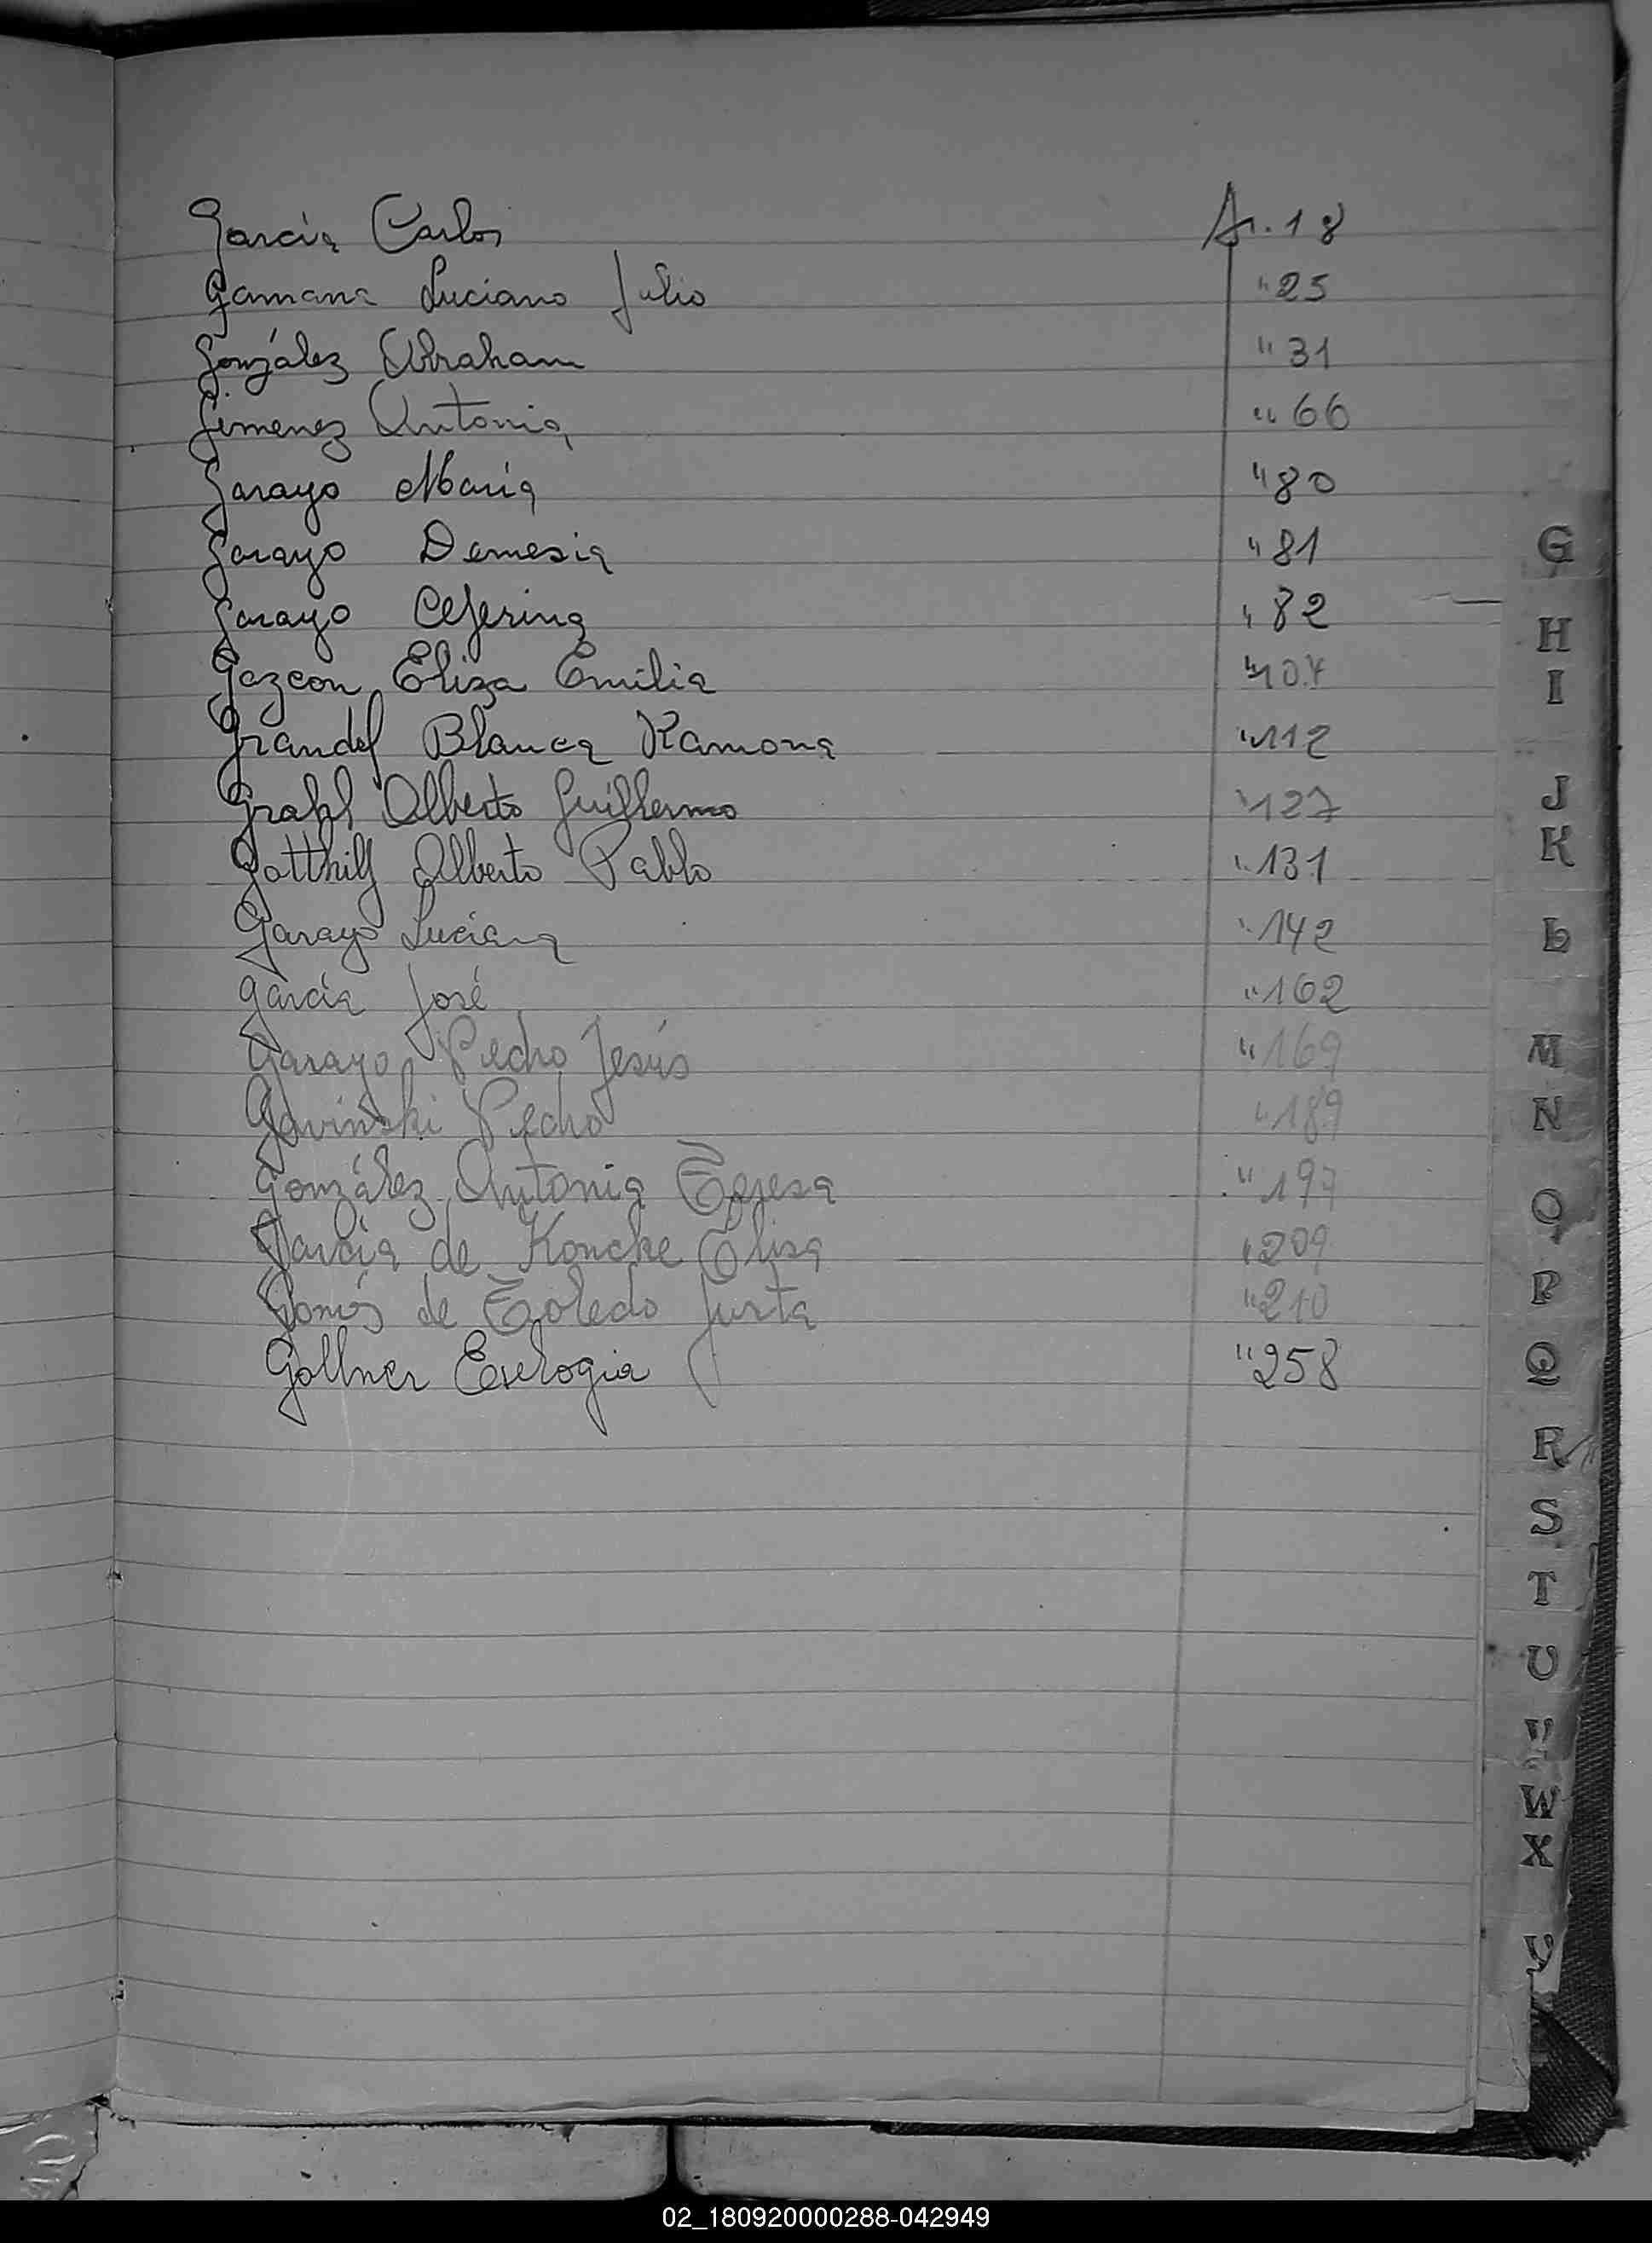 García Carlos A. 18
Gamana Luciano Julio " 25
González Abraham " 31
Gimenez Antonia " 66
Garayo María " 80
Garayo Demesia " 81
Garayo Ceferina " 82
Gazcon Eliza Emilia " 107
Grandel Blanca Ramona " 112
Grahl Alberto Guillermo " 127
Gotthilf Alberto Pablo " 131
Garayo Luciana " 142
García José " 162
Garayo Pedro Jesús " 169
Gavinski Pedro " 189
González Antonia Teresa " 197
García de Koncke Elisa " 209
Gomés de Toledo Justa " 210
Gollner Eulogia " 258
G
H
I
J
K
L
M
N
O
P
Q
R
S
T
U
V
W
X
Y
02_180920000288-042949